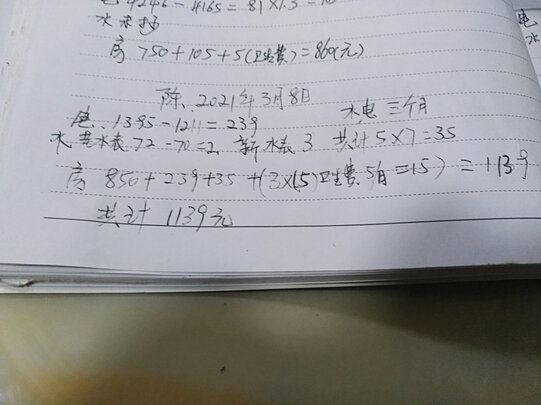 电 4246-4165=81×1.3=10
水 未抄
房 750+105+5(卫生费)=860(元)
陈 2021年3月8日
水电 三个月
电 1395-1211=239
水 老水表 72-70=2 新水表 3 共计 5×7=35
房 850+239+35+(3×(5)卫生费 5/月=15) =1139
共计 1139元
电
水